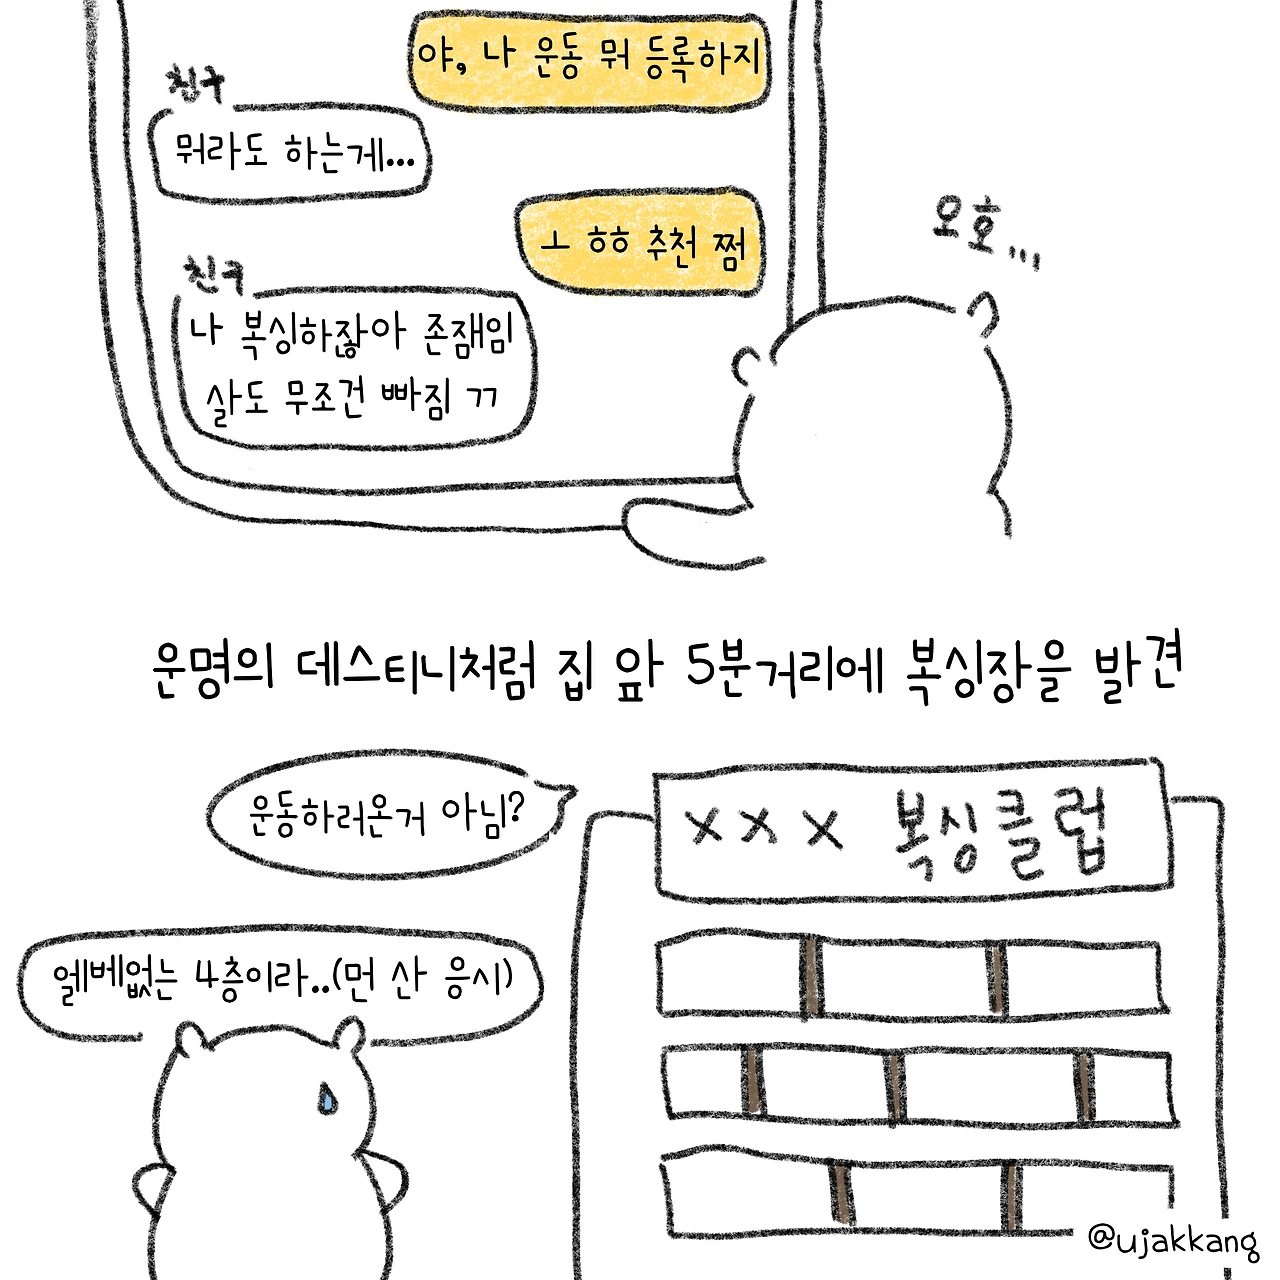 야, 나 운동 뭐 등록하지
친구
뭐라도 하는게...
ㅗ ㅎㅎ 추천 쩜
오호...
친구
나 복싱하잖아 존잼임
살도 무조건 빠짐 ㄲ
운명의 데스티니처럼 집 앞 5분거리에 복싱장을 발견
운동하러온거 아님?
XXX 복싱클럽
엘베없는 4층이라..(먼 산 응시)
@ujakkang